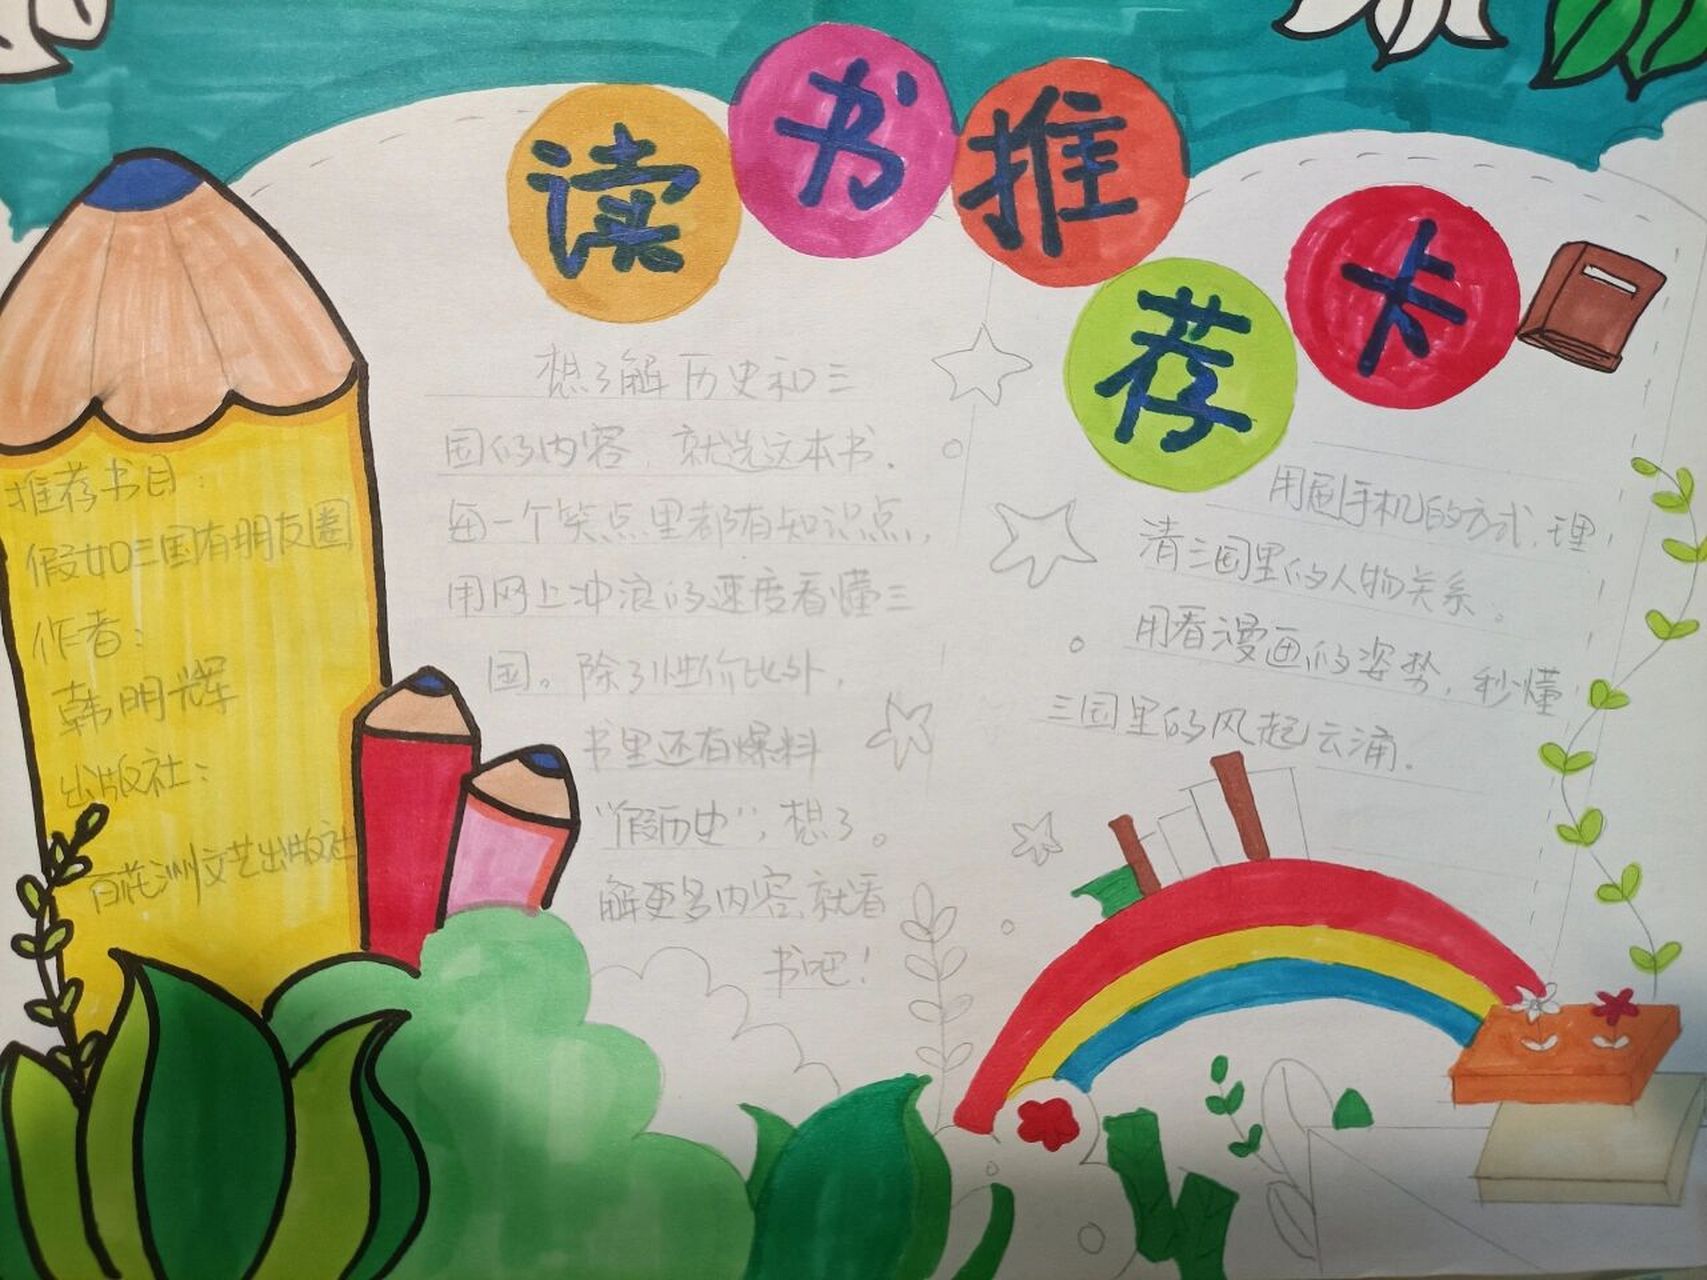 读书推荐卡
推荐书目:
假如三国有朋友圈
作者:
韩明辉
出版社:
百花洲文艺出版社
想了解历史和三
国的内容,就选这本书.
每一个笑点里都有知识点,
用网上冲浪的速度看懂三
国。除了性价比外,
书里还有爆料
“假历史”,想了。
解更多内容,就看
书吧!
用刷手机的方式,理
清三国里的人物关系。
用看漫画的姿势,秒懂
三国里的风起云涌.